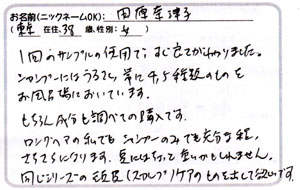 お名前(ニックネームOK): 田原奈津子
(東京 在住、38 歳、性別: 女)
1回のサンプルの使用で、すぐ良さがわかりました。
シャンプーにはうるさく、常に4,5種類のものを
お風呂場においています。
もちろん成分も調べての購入です。
ロングヘアの私でもシャンプーのみでも充分な程、
さらさらになります。夏には
同じシリーズの頭皮(スカルプ)ケアのものも出して欲しいです。